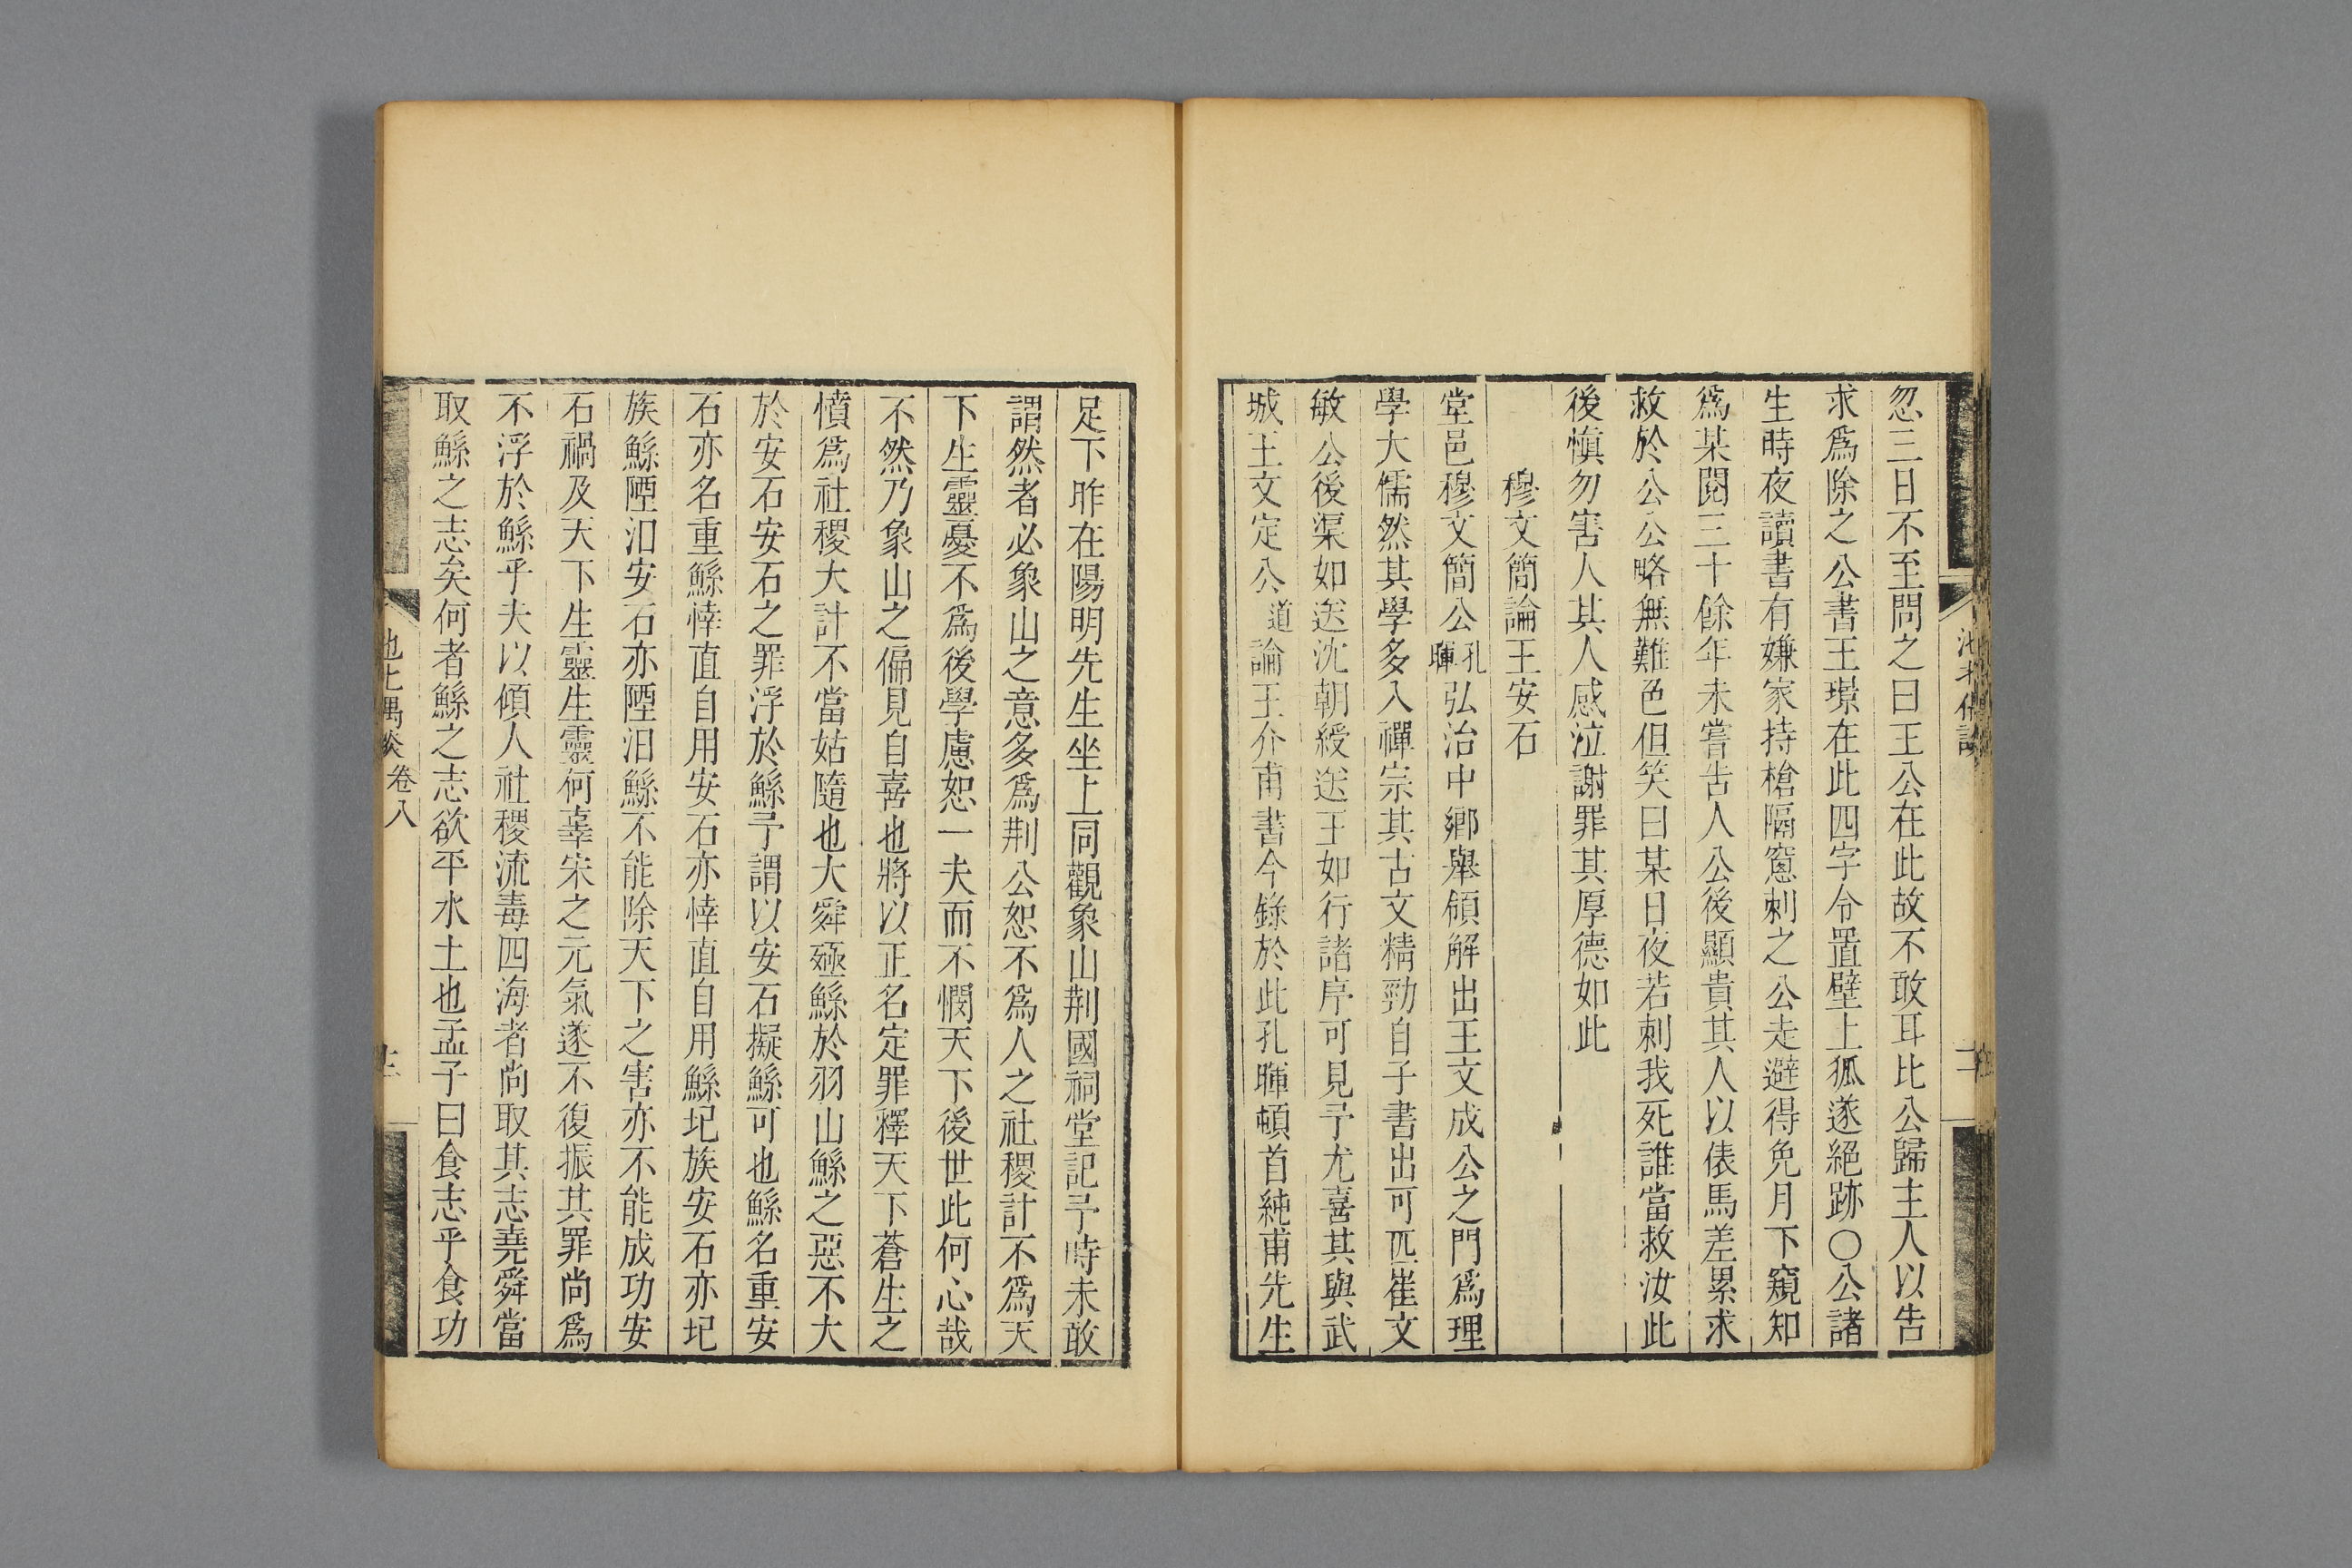 忽三日不至問之曰王公在此故不敢耳比公歸主人以告
求爲除之公書王璟在此四字令置壁上狐遂絕跡〇公諸
生時夜讀書有嫌家持槍隔窻刺之公走避得免月下窺知
爲某閱三十餘年未嘗告人公後顯貴其人以俵馬差累求
救於公公略無難色但笑曰某日夜若刺我死誰當救汝此
後慎勿害人其人感泣謝罪其厚德如此
穆文簡論王安石
堂邑穆文簡公孔暉弘治中鄉舉領解出王文成公之門爲理
學大儒然其學多入禪宗其古文精勁自子書出可匹崔文
敏公後渠如送沈朝綬送王如行諸序可見予尤喜其與武
城王文定公道論王介甫書今錄於此孔暉頓首純甫先生
足下昨在陽明先生坐上同觀象山荆國祠堂記予時未敢
謂然者必象山之意多爲荆公恕不爲人之社稷計不爲天
下生靈憂不爲後學慮恕一夫而不憫天下後世此何心哉
不然乃象山之偏見自喜也將以正名定罪釋天下蒼生之
憤爲社稷大計不當姑隨也大舜殛鯀於羽山鯀之惡不大
於安石安石之罪浮於鯀予謂以安石擬鯀可也鯀名重安
石亦名重鯀悻直自用安石亦悻直自用鯀圮族安石亦圮
族鯀陻汩安石亦陻汩鯀不能除天下之害亦不能成功安
石禍及天下生靈生靈何辜宋之元氣遂不復振其罪尚爲
不浮於鯀乎夫以傾人社稷流毒四海者尚取其志堯舜當
取鯀之志矣何者鯀之志欲平水土也孟子曰食志乎食功
卷八